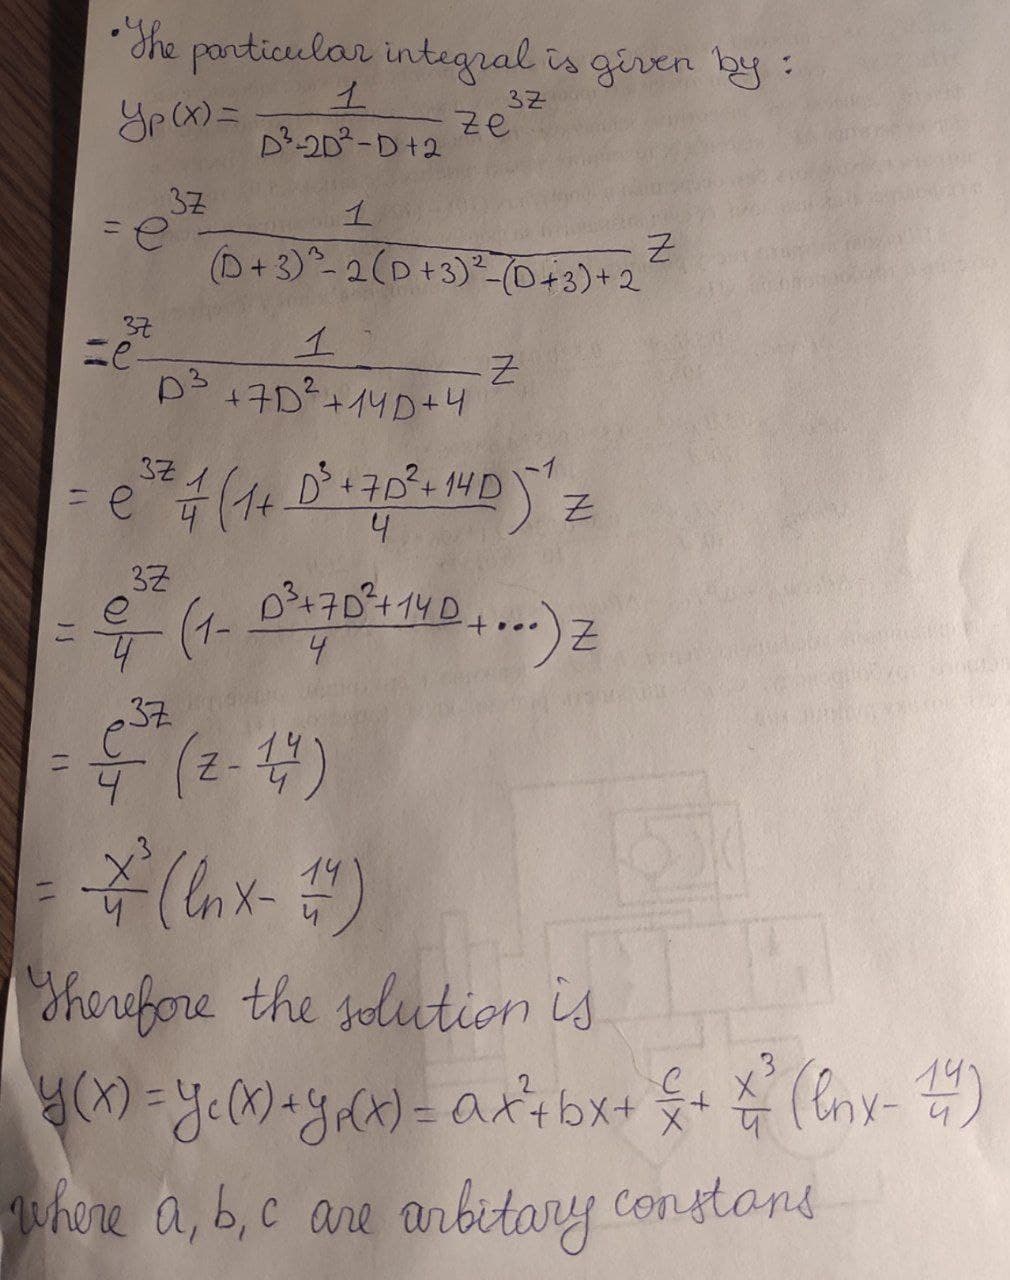 • The particular integral is given by :
yₚ(x) = 1/(D³-2D²-D+2) ze³ᶻ
= e³ᶻ 1/((D+3)³-2(D+3)²-(D+3)+2) z
= e³ᶻ 1/(D³+7D²+14D+4) z
= e³ᶻ 1/4 (1+ (D³+7D²+14D)/4)⁻¹ z
= e³ᶻ/4 (1- (D³+7D²+14D)/4 + ...) z
= e³ᶻ/4 (z - 14/4)
= x³/4 (ln x - 14/4)
Therefore the solution is
y(x) = y_c(x) + yₚ(x) = ax² + bx + c/x + x³/4 (ln x - 14/4)
where a, b, c are arbitary constans